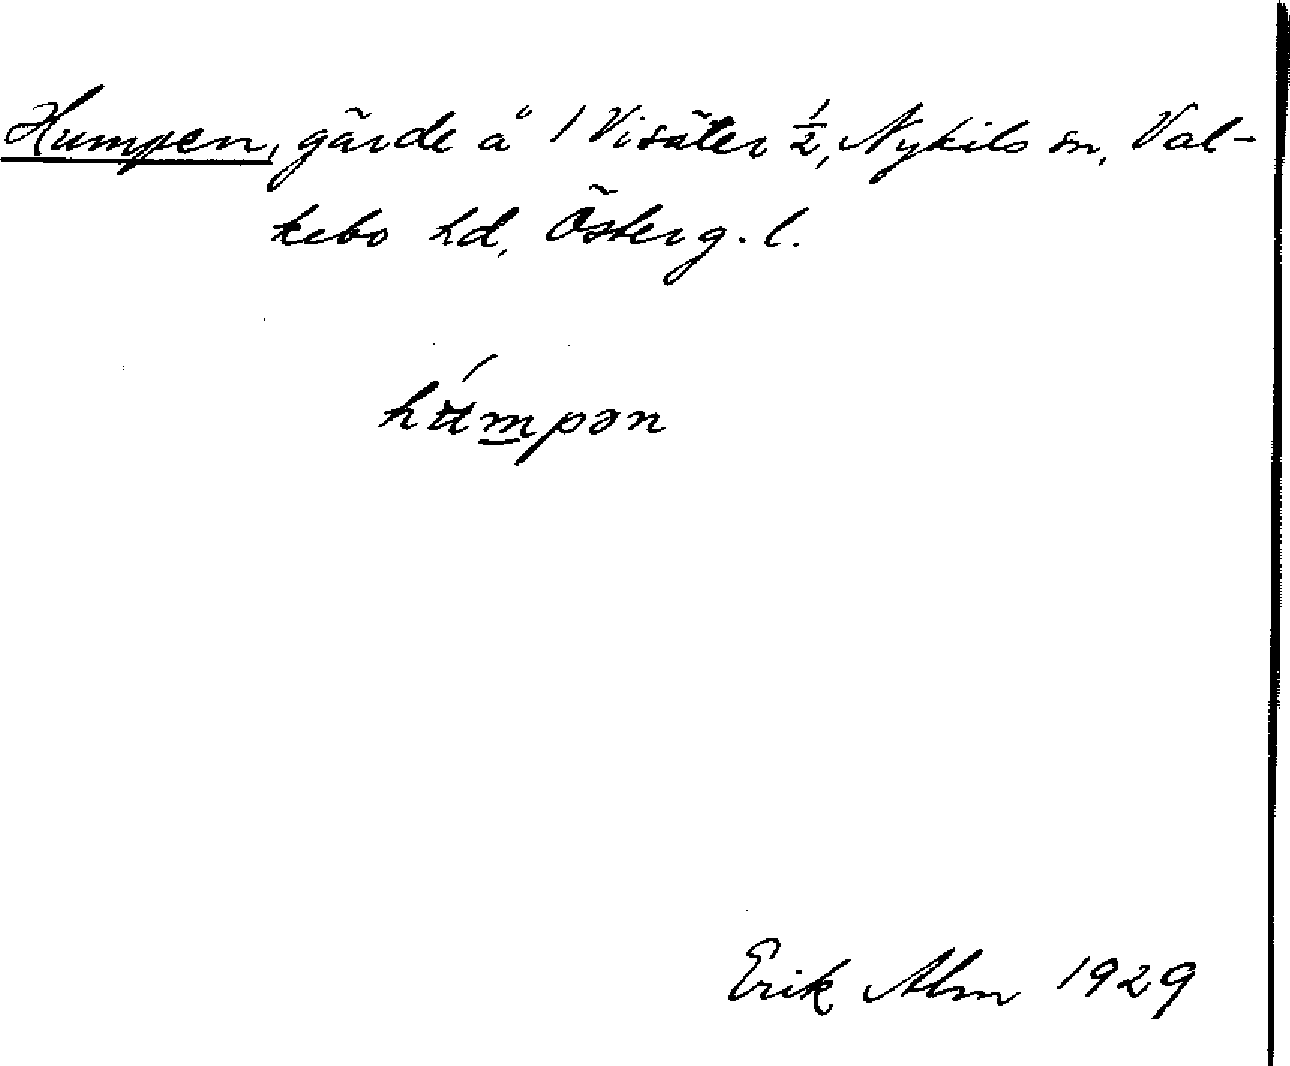 Humpen, gärde å 1 Visäter ½, Nykils sn, Val-
kebo hd, Österg. l.
hʉ́mpən
Erik Alm 1929